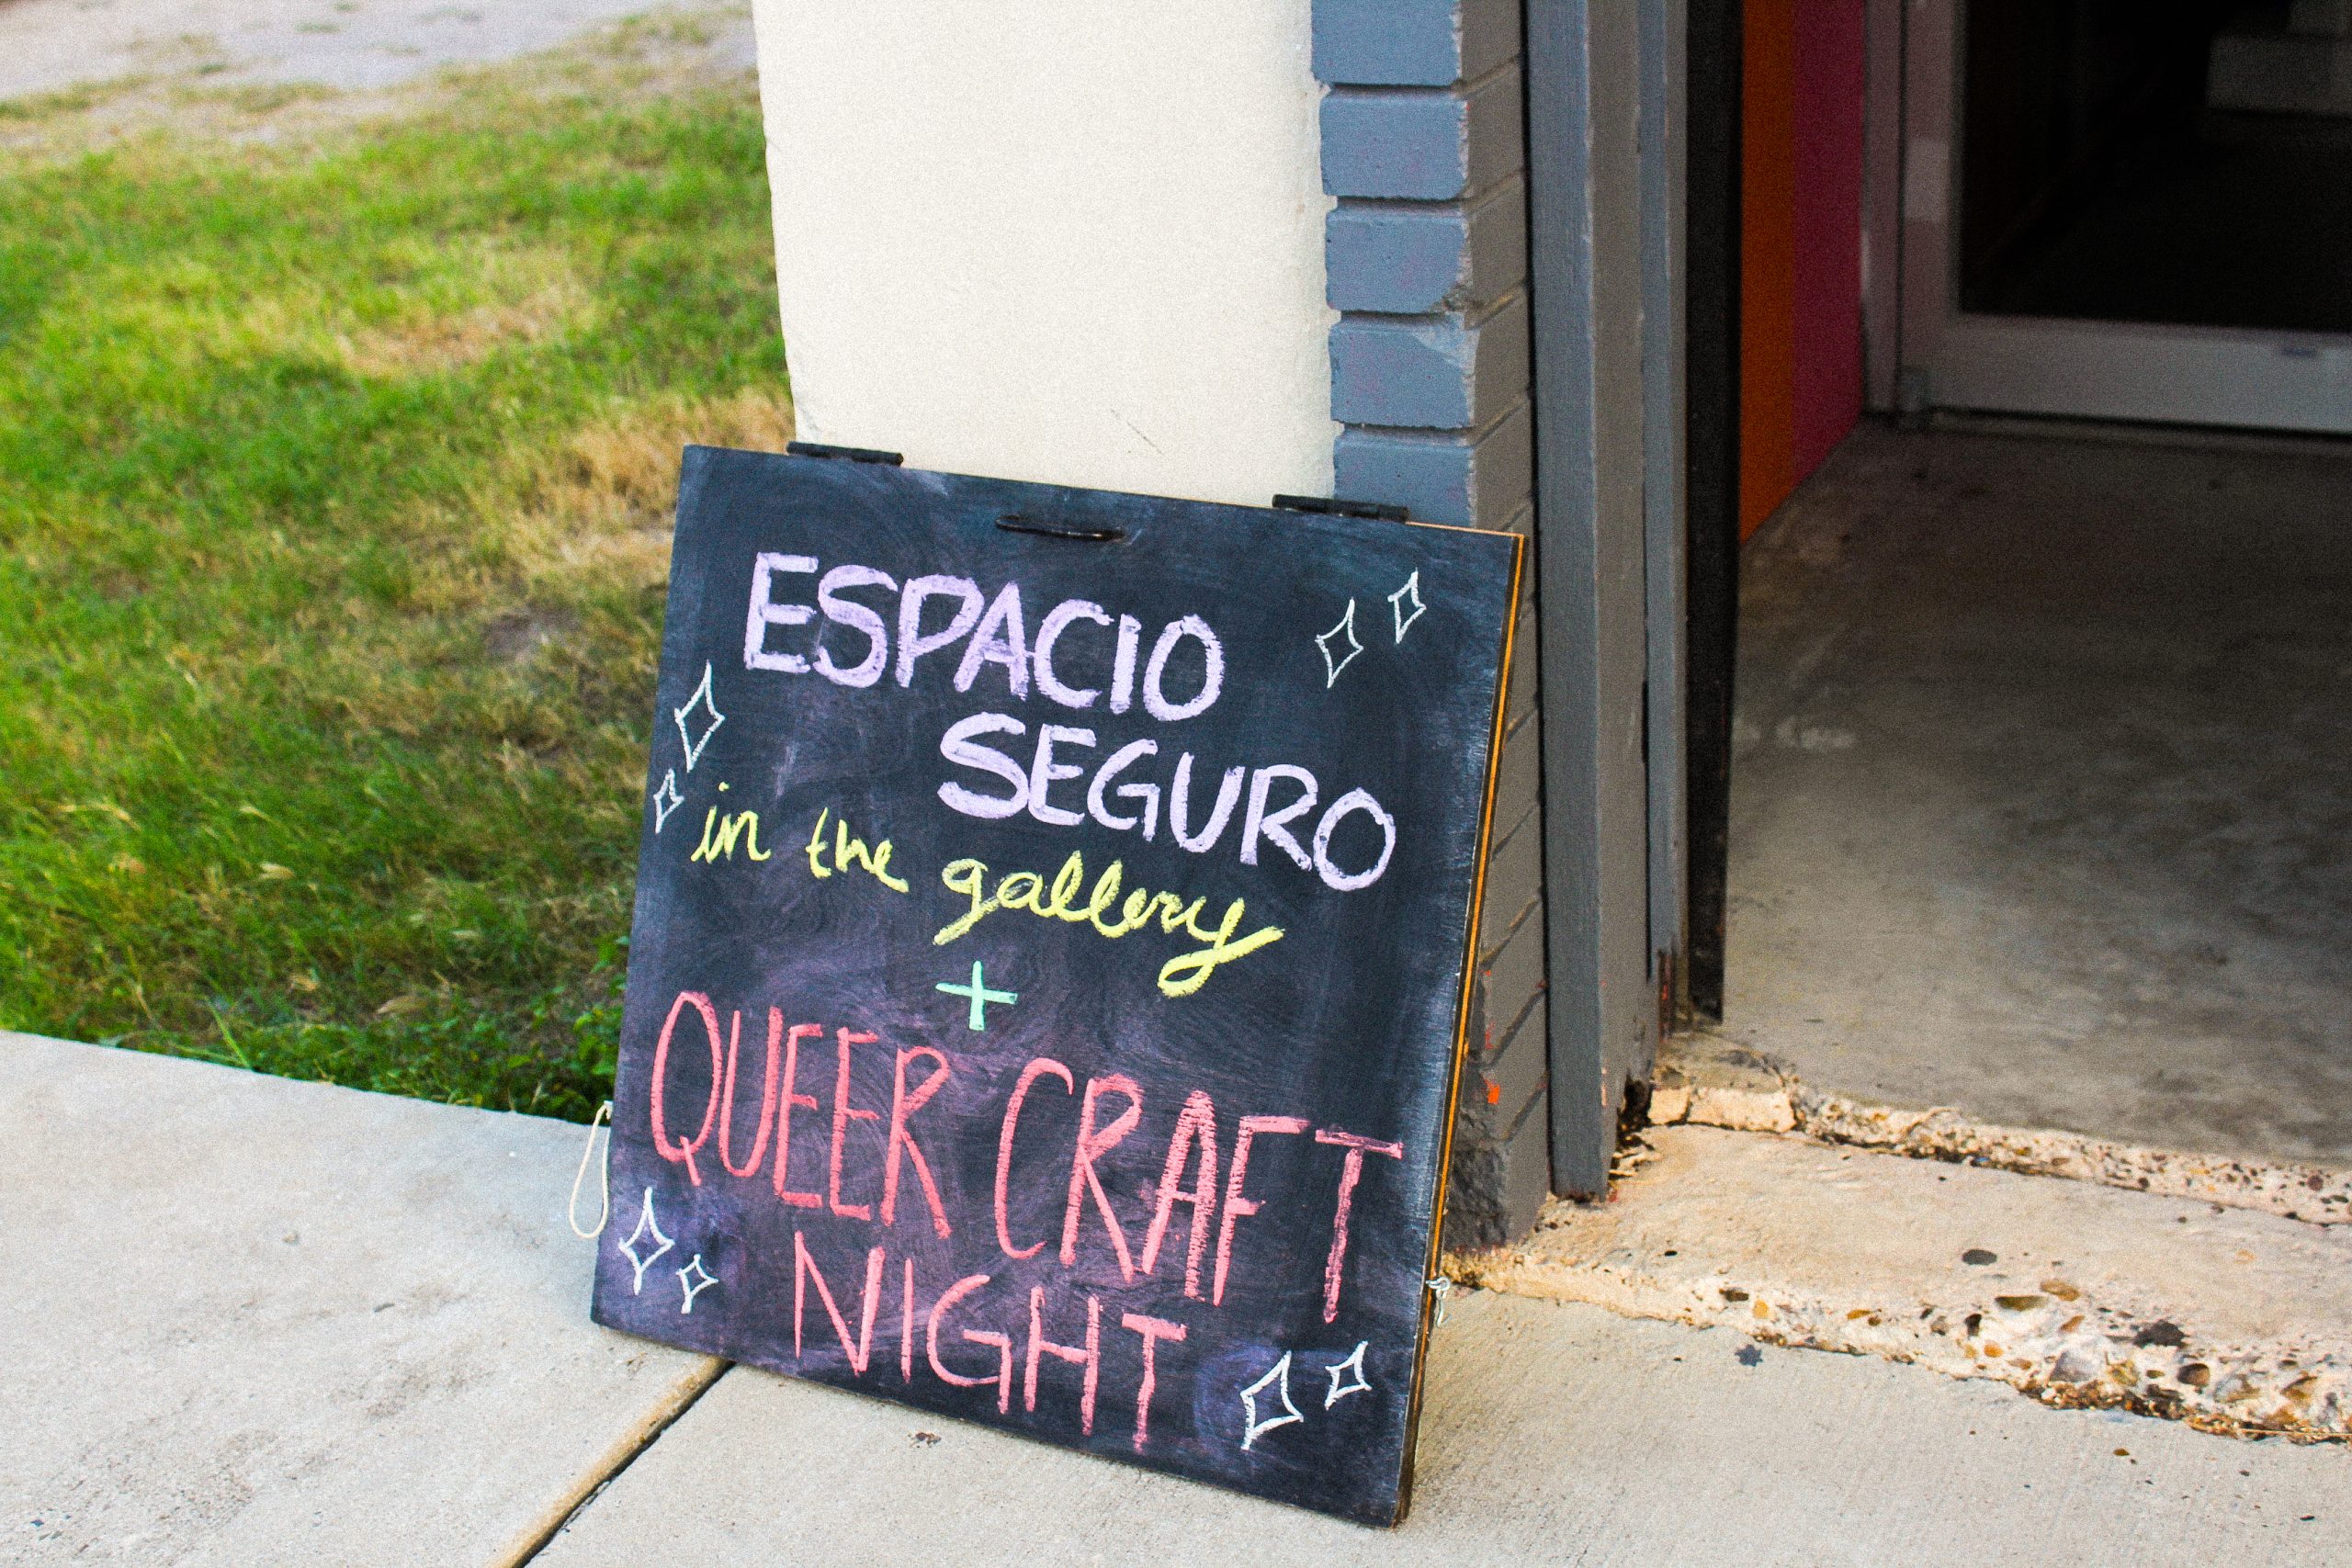 ESPACIO
SEGURO
in the gallery
+
QUEER CRAFT
NIGHT